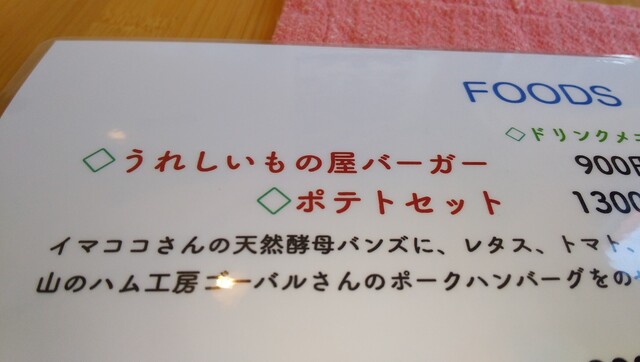 FOODS
◇ドリンクメニ
◇うれしいもの屋バーガー 900円
◇ポテトセット 1300
イマココさんの天然酵母バンズに、レタス、トマト、
山のハム工房ゴーバルさんのポークハンバーグをの